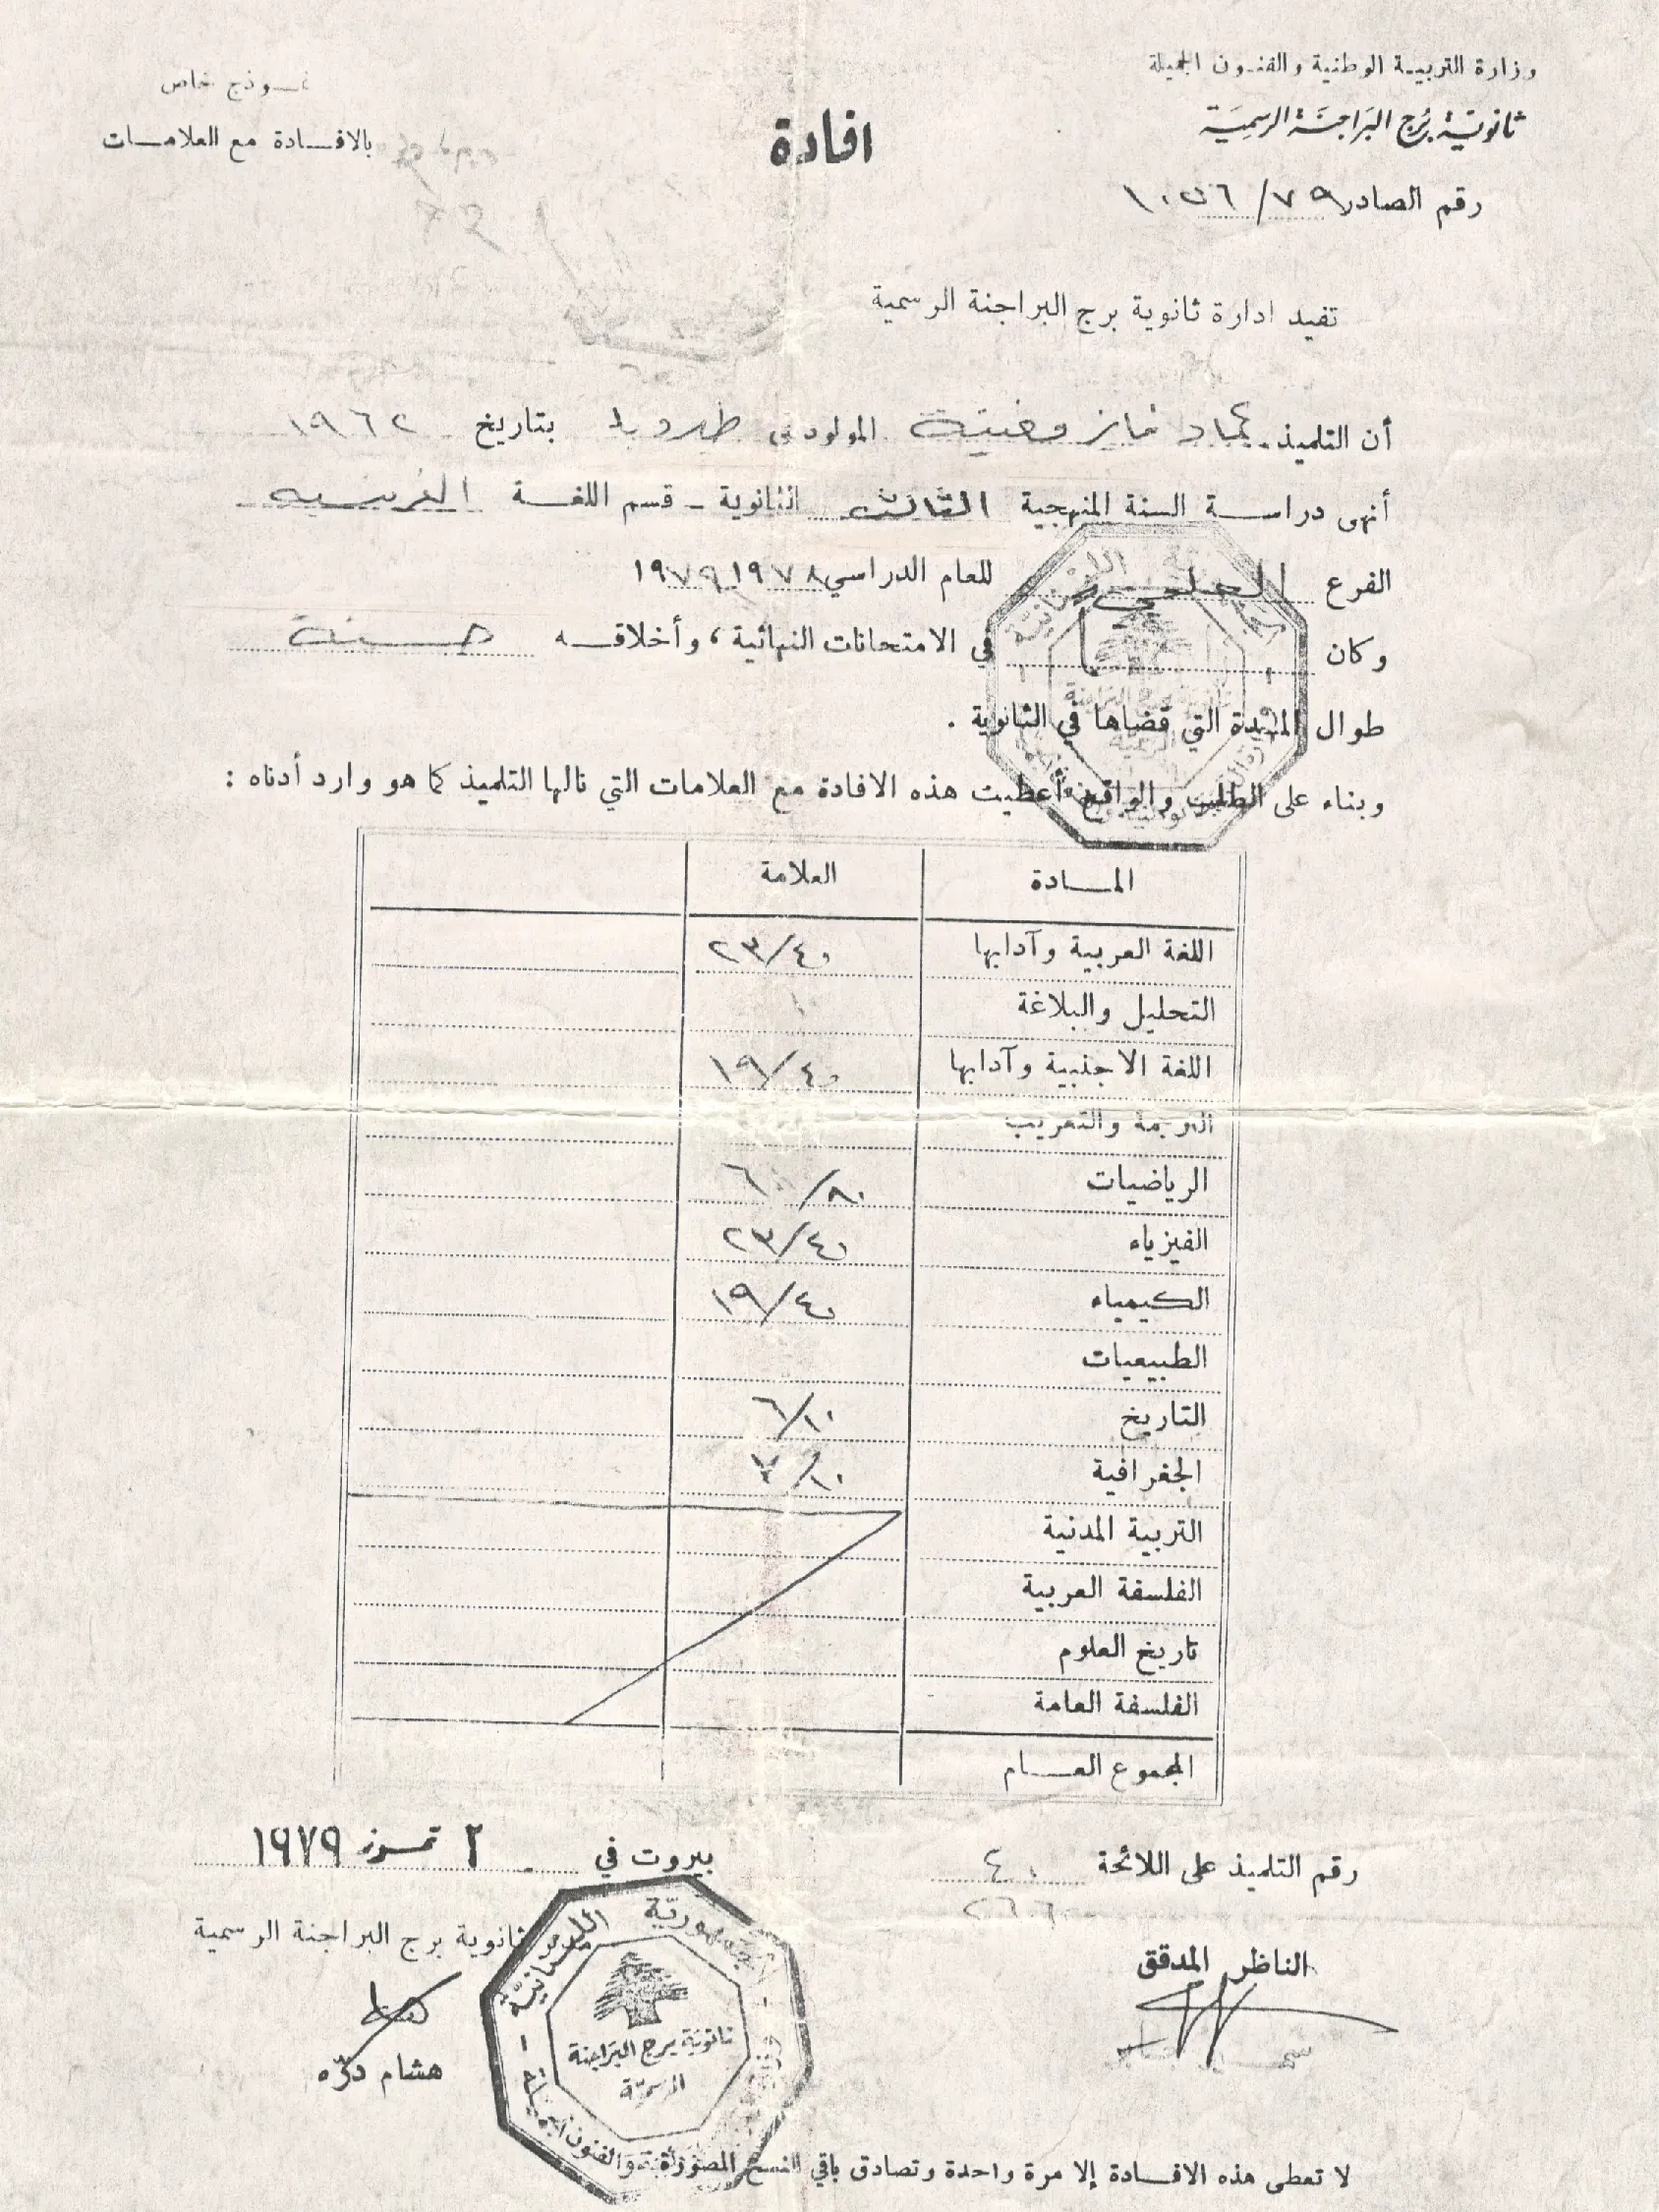 وزارة التربية الوطنية والفنون الجميلة
ثانوية برج البراجنة الرسمية
رقم الصادر ٧٩/١٠٥٦
نموذج خاص
بالافادة مع العلامات
افادة
تفيد ادارة ثانوية برج البراجنة الرسمية
أن التلميذ عماد فايز مغنية المولود في طيردبا بتاريخ ١٩٦٢
أنهى دراسة السنة المنهجية الثالثة الثانوية - قسم اللغة الفرنسية
الفرع العلمي للعام الدراسي ١٩٧٨ ١٩٧٩
وكان في الامتحانات النهائية ، وأخلاقه حسنة
طوال المدة التي قضاها في الثانوية .
وبناء على الطلب والواقع أعطيت هذه الافادة مع العلامات التي نالها التلميذ كما هو وارد أدناه :
المادة العلامة
اللغة العربية وآدابها ٢٣/٤٠
التحليل والبلاغة
اللغة الاجنبية وآدابها ١٩/٤٠
الترجمة والتعريب
الرياضيات ٦٠/٨٠
الفيزياء ٢٣/٤٠
الكيمياء ١٩/٤٠
الطبيعيات
التاريخ ٦/١٠
الجغرافية ٧/١٠
التربية المدنية
الفلسفة العربية
تاريخ العلوم
الفلسفة العامة
المجموع العام
رقم التلميذ على اللائحة ٤٠
بيروت في ٢ تموز ١٩٧٩
الناظر المدقق
مدير ثانوية برج البراجنة الرسمية
هشام درّه
الجمهوريّة اللبنانيّة
ثانوية برج البراجنة
الرسميّة
لا تعطى هذه الافادة إلا مرة واحدة وتصادق باقي النسخ المصورة